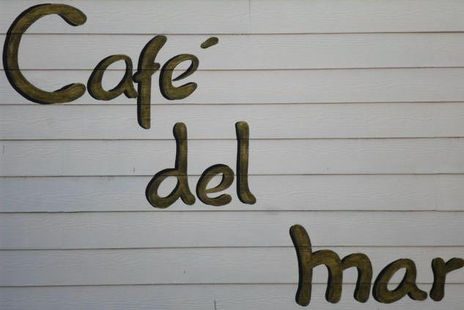 Café
del
mar